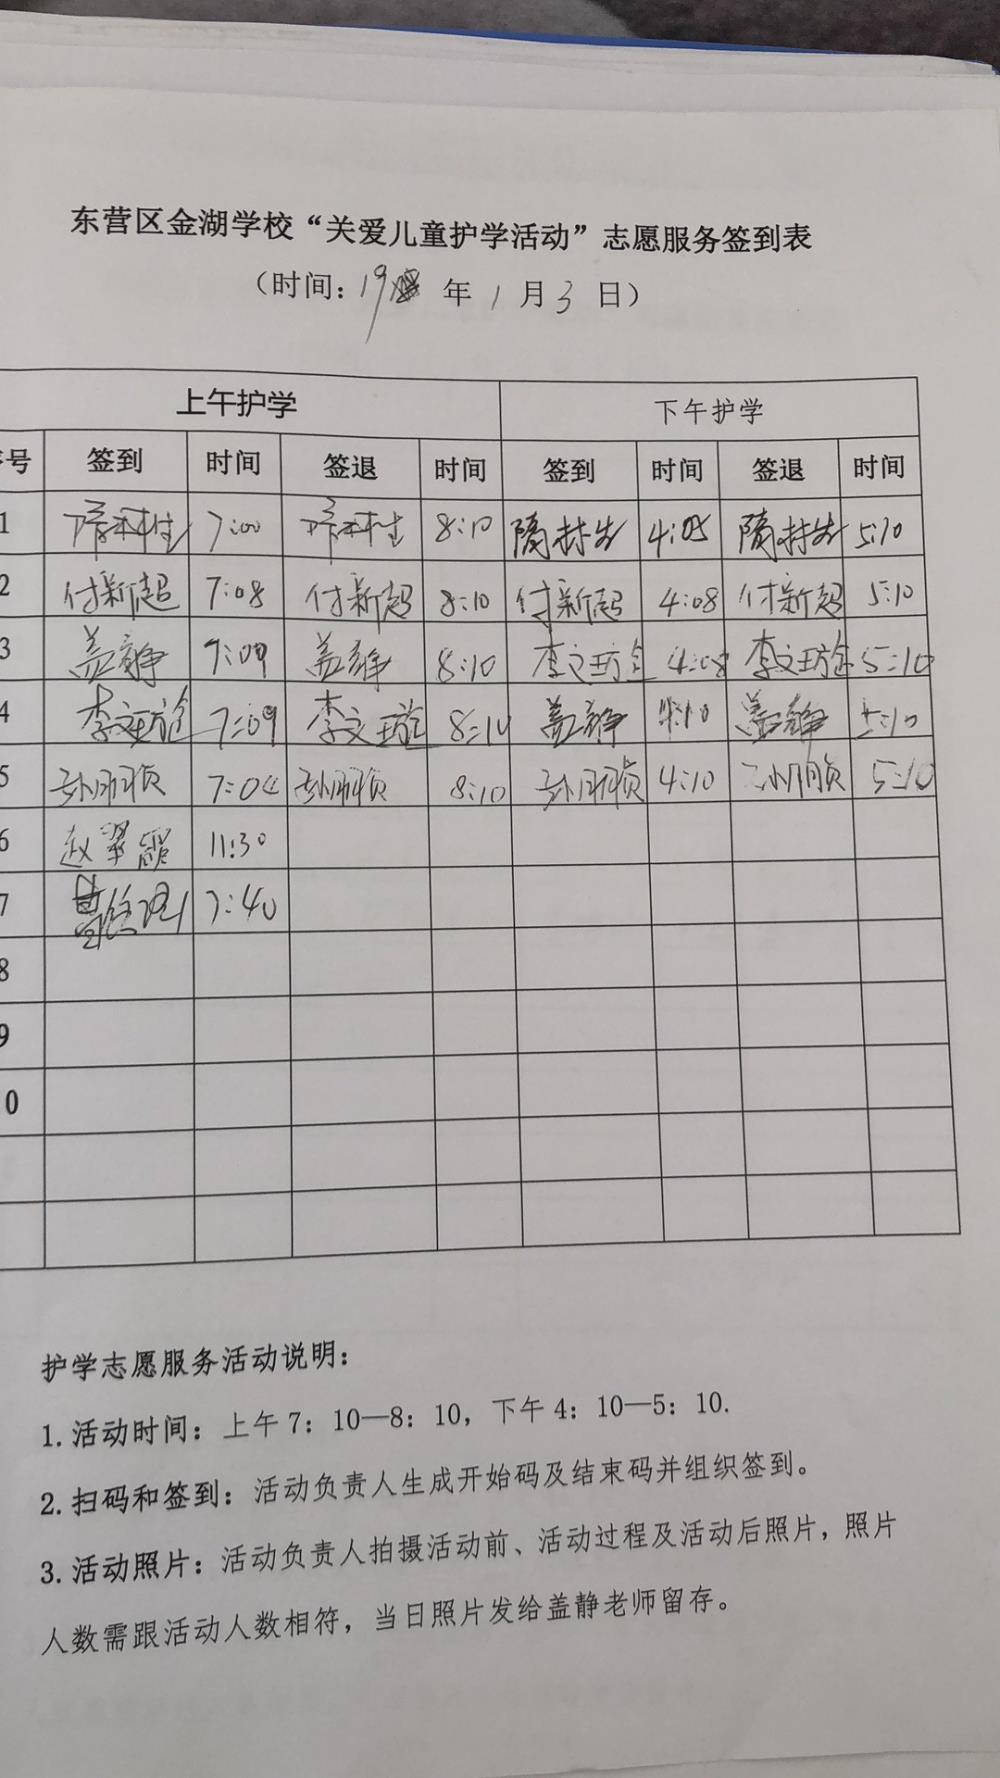 东营区金湖学校“关爱儿童护学活动”志愿服务签到表
（时间：19 年 1 月 3 日）
上午护学 下午护学
号 签到 时间 签退 时间 签到 时间 签退 时间
1 7:00 8:10 4:05 5:10
2 付新超 7:08 付新超 8:10 付新超 4:08 付新超 5:10
3 盖静 7:09 盖静 8:10 李文 4:08 李文 5:10
4 李文 7:09 李文 8:10 盖静 4:10 盖静 5:10
5 7:04 8:10 4:10 5:10
6 赵翠 11:30
7 7:40
8
9
0
护学志愿服务活动说明：
1.活动时间：上午 7：10—8：10，下午 4：10—5：10.
2.扫码和签到：活动负责人生成开始码及结束码并组织签到。
3.活动照片：活动负责人拍摄活动前、活动过程及活动后照片，照片
人数需跟活动人数相符，当日照片发给盖静老师留存。